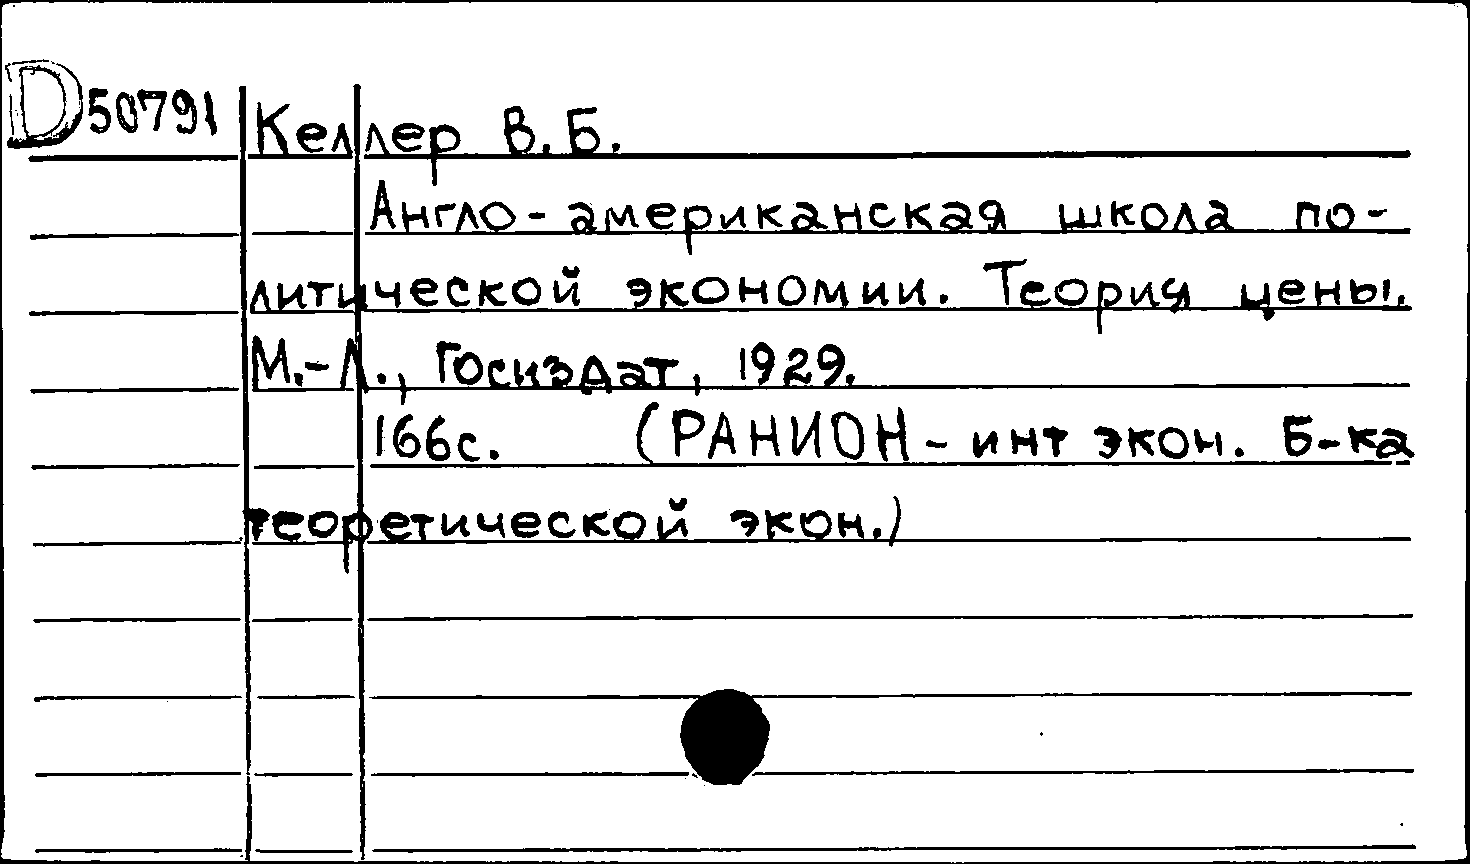 D 50791 Келлер В.Б.
Англо-американская школа по-
литической экономии. Теория цены.
М.-Л., Госиздат, 1929.
166с. (РАНИОН - инт экон. Б-ка
теоретической экон.)